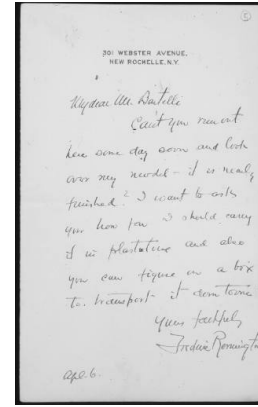 5
301 WEBSTER AVENUE.
NEW ROCHELLE. N.Y.
My dear Mr. Bertelli
Can't you run out
here some day soon and look
over my model - it is nearly
finished? I want to ask
you how far I should carry
it in plastaline and also
you can figure on a box
to transport it down town
Yours faithfully
Frederic Remington
Apl. 6.